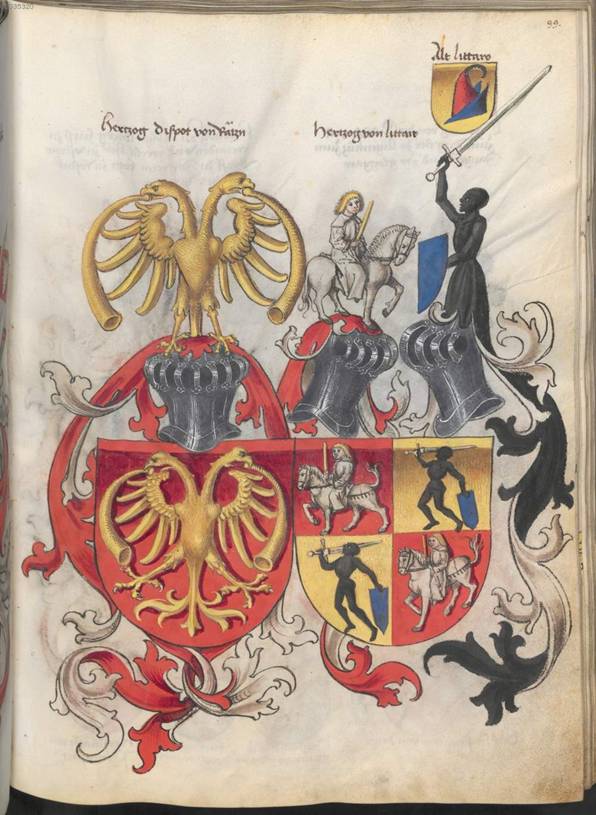 99.
Alt littaro
hertzog dispot von Rätzn
hertzog von littaw